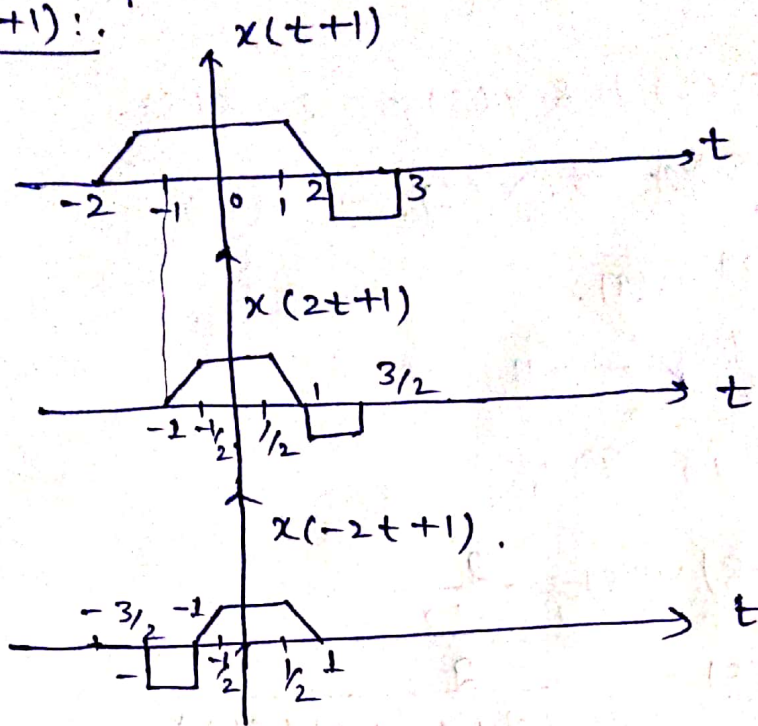 +1):.
x(t+1)
t
-2 -1 0 1 2 3
x(2t+1)
3/2
1
t
-1 -1/2 1/2
x(-2t+1).
-3/2 -1
t
- -1/2 1/2 1